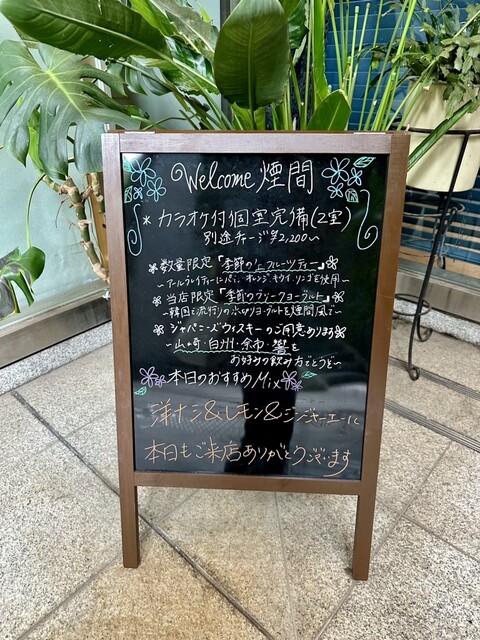 Welcome 煙間
* カラオケ付個室完備(2室)
別途チャージ¥2,200〜
数量限定「季節の上フルーツティー」
〜アールグレイティーにパイン、オレンジ、キウイ、リンゴを使用〜
当店限定「季節のフローズンヨーグルト」
〜韓国で流行りの氷切りヨーグルトを煙間風で〜
ジャパニーズウィスキーのご用意あります
〜山崎・白州・余市・響を
お好みの飲み方でどうぞ〜
本日のおすすめMix
洋ナシ&レモン&ジンジャーエール
本日もご来店ありがとうございます